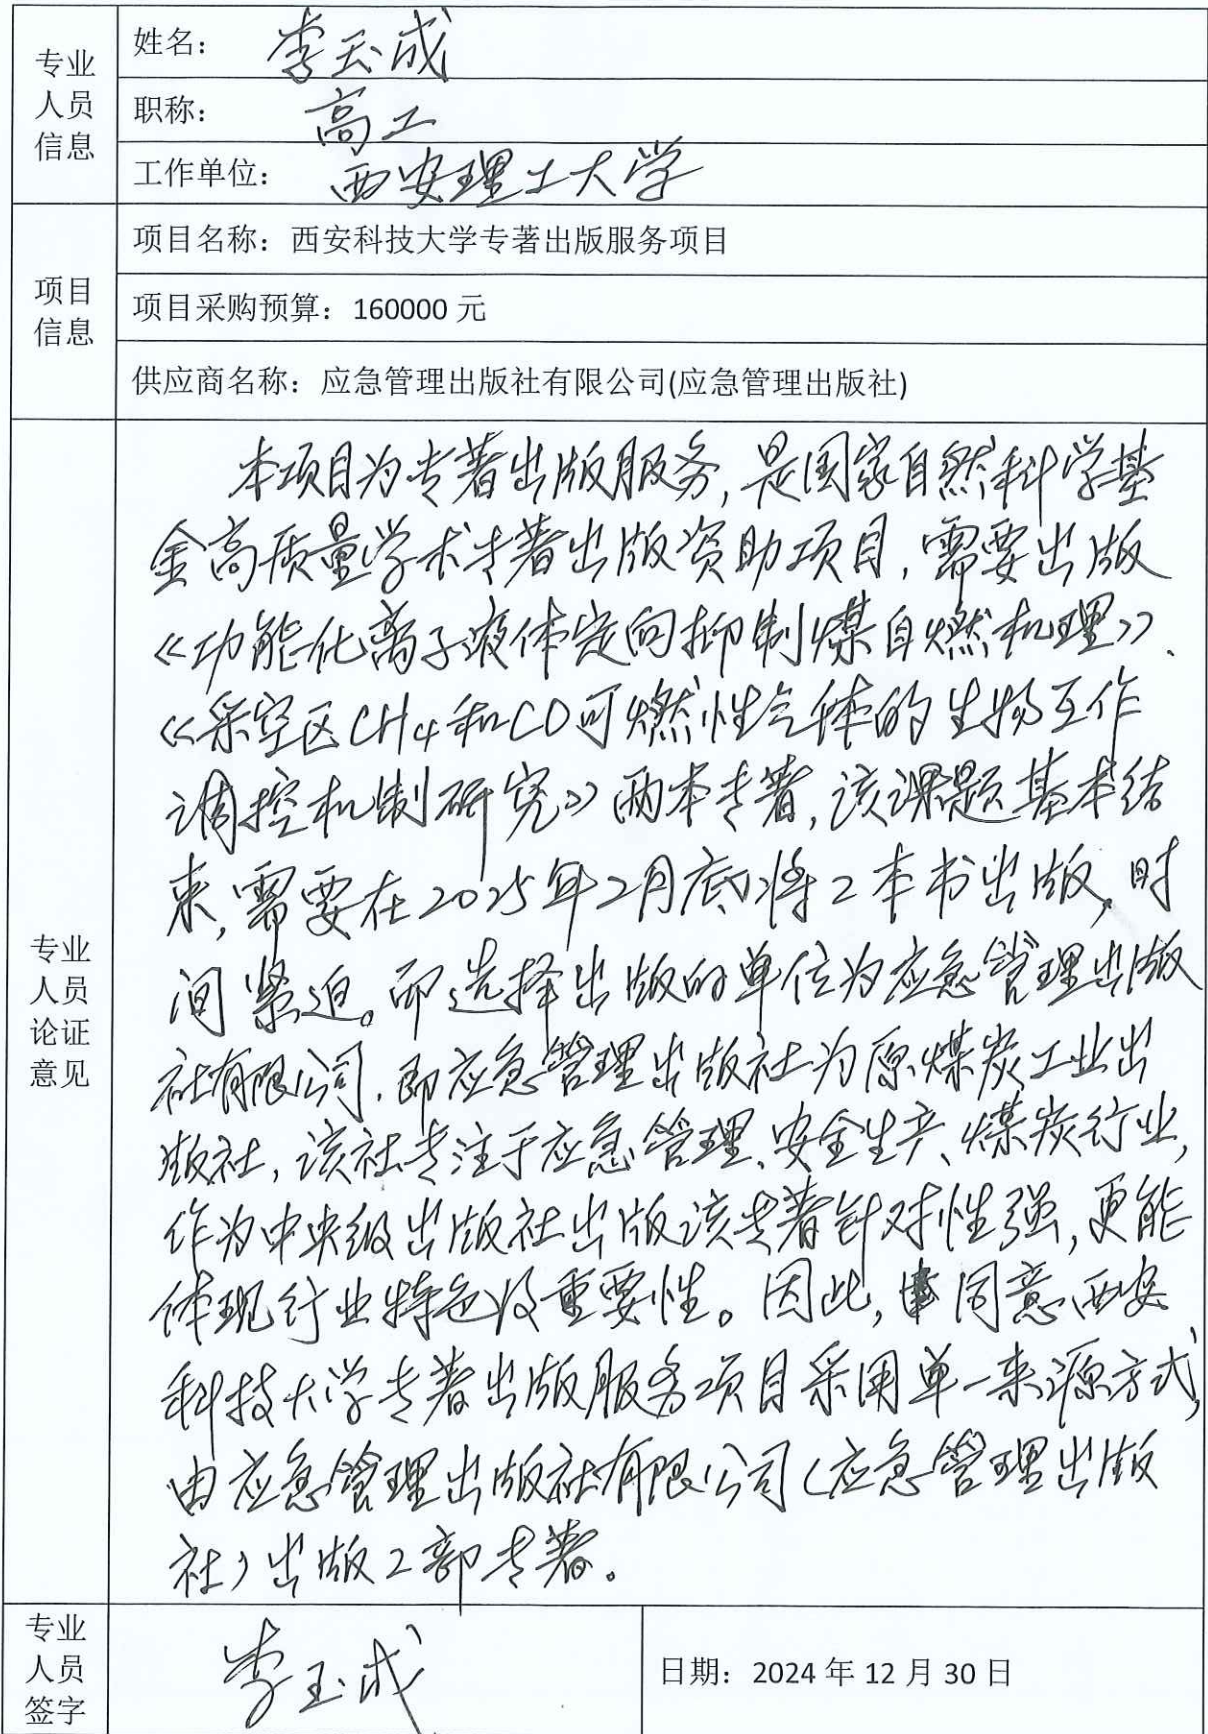 专业
人员
信息
姓名：李玉成
职称：高工
工作单位：西安理工大学
项目
信息
项目名称：西安科技大学专著出版服务项目
项目采购预算：160000 元
供应商名称：应急管理出版社有限公司(应急管理出版社)
专业
人员
论证
意见
本项目为专著出版服务,是国家自然科学基
金高质量学术专著出版资助项目,需要出版
《功能化离子液体定向抑制煤自燃机理》、
《采空区CH4和CO可燃性气体的生物互作
调控机制研究》两本专著,该课题基本结
束,需要在2025年2月底将2本书出版,时
间紧迫。而选择出版的单位为应急管理出版
社有限公司.即应急管理出版社为原煤炭工业出
版社,该社专注于应急管理、安全生产、煤炭行业,
作为中央级出版社出版该专著针对性强,更能
体现行业特色及重要性。因此,同意西安
科技大学专著出版服务项目采用单一来源方式,
由应急管理出版社有限公司(应急管理出版
社)出版2部专著。
专业
人员
签字
李玉成
日期：2024 年 12 月 30 日